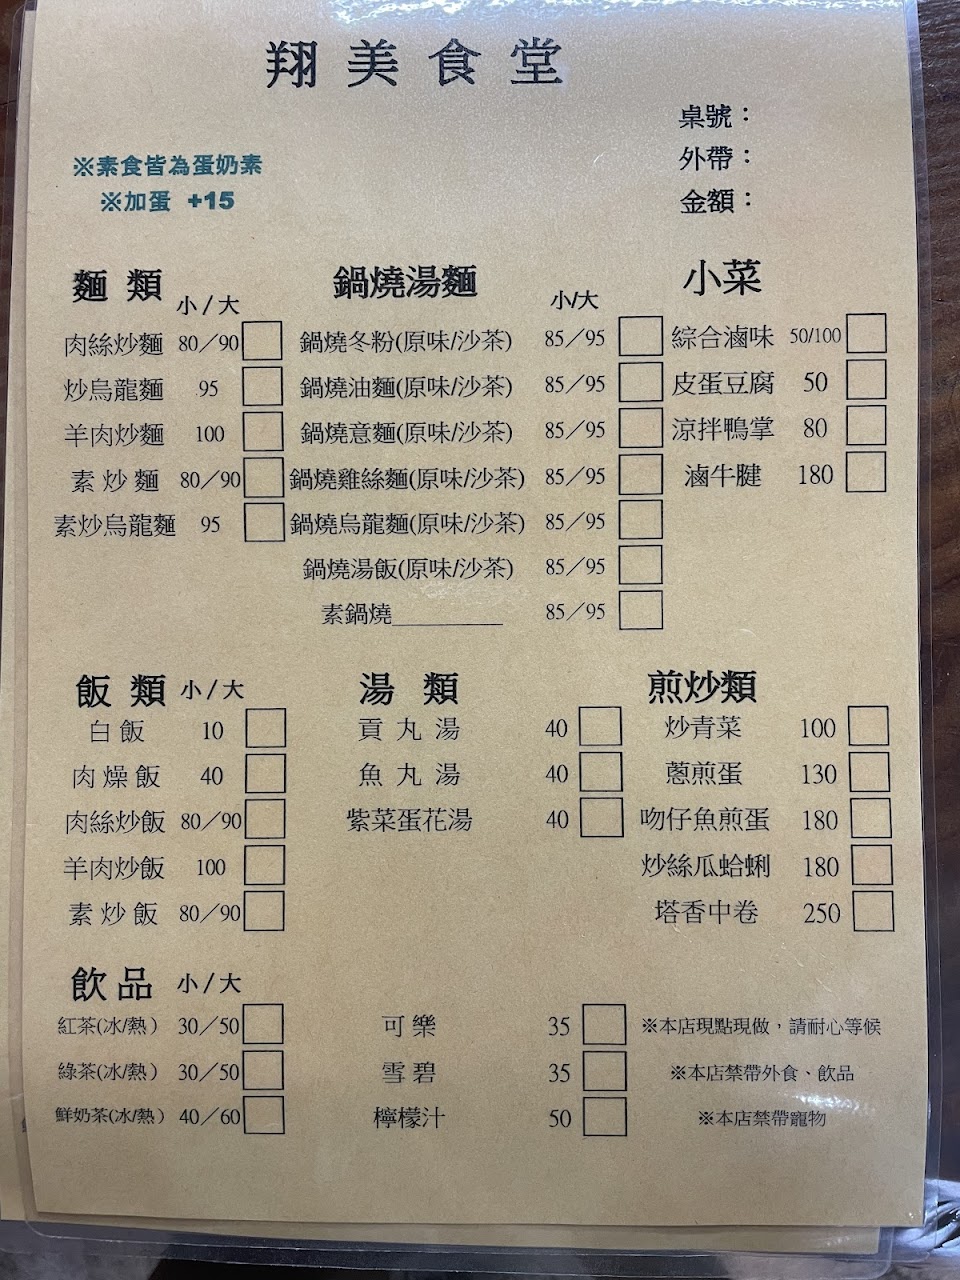 翔美食堂
桌號：
外帶：
金額：
※素食皆為蛋奶素
※加蛋 +15
麵類 小/大
肉絲炒麵 80／90
炒烏龍麵 95
羊肉炒麵 100
素炒麵 80／90
素炒烏龍麵 95
鍋燒湯麵 小/大
鍋燒冬粉(原味/沙茶) 85／95
鍋燒油麵(原味/沙茶) 85／95
鍋燒意麵(原味/沙茶) 85／95
鍋燒雞絲麵(原味/沙茶) 85／95
鍋燒烏龍麵(原味/沙茶) 85／95
鍋燒湯飯(原味/沙茶) 85／95
素鍋燒_________ 85／95
小菜
綜合滷味 50/100
皮蛋豆腐 50
涼拌鴨掌 80
滷牛腱 180
飯類 小/大
白飯 10
肉燥飯 40
肉絲炒飯 80／90
羊肉炒飯 100
素炒飯 80／90
湯類
貢丸湯 40
魚丸湯 40
紫菜蛋花湯 40
煎炒類
炒青菜 100
蔥煎蛋 130
吻仔魚煎蛋 180
炒絲瓜蛤蜊 180
塔香中卷 250
飲品 小/大
紅茶(冰/熱) 30／50
綠茶(冰/熱) 30／50
鮮奶茶(冰/熱) 40／60
可樂 35
雪碧 35
檸檬汁 50
※本店現點現做，請耐心等候
※本店禁帶外食、飲品
※本店禁帶寵物